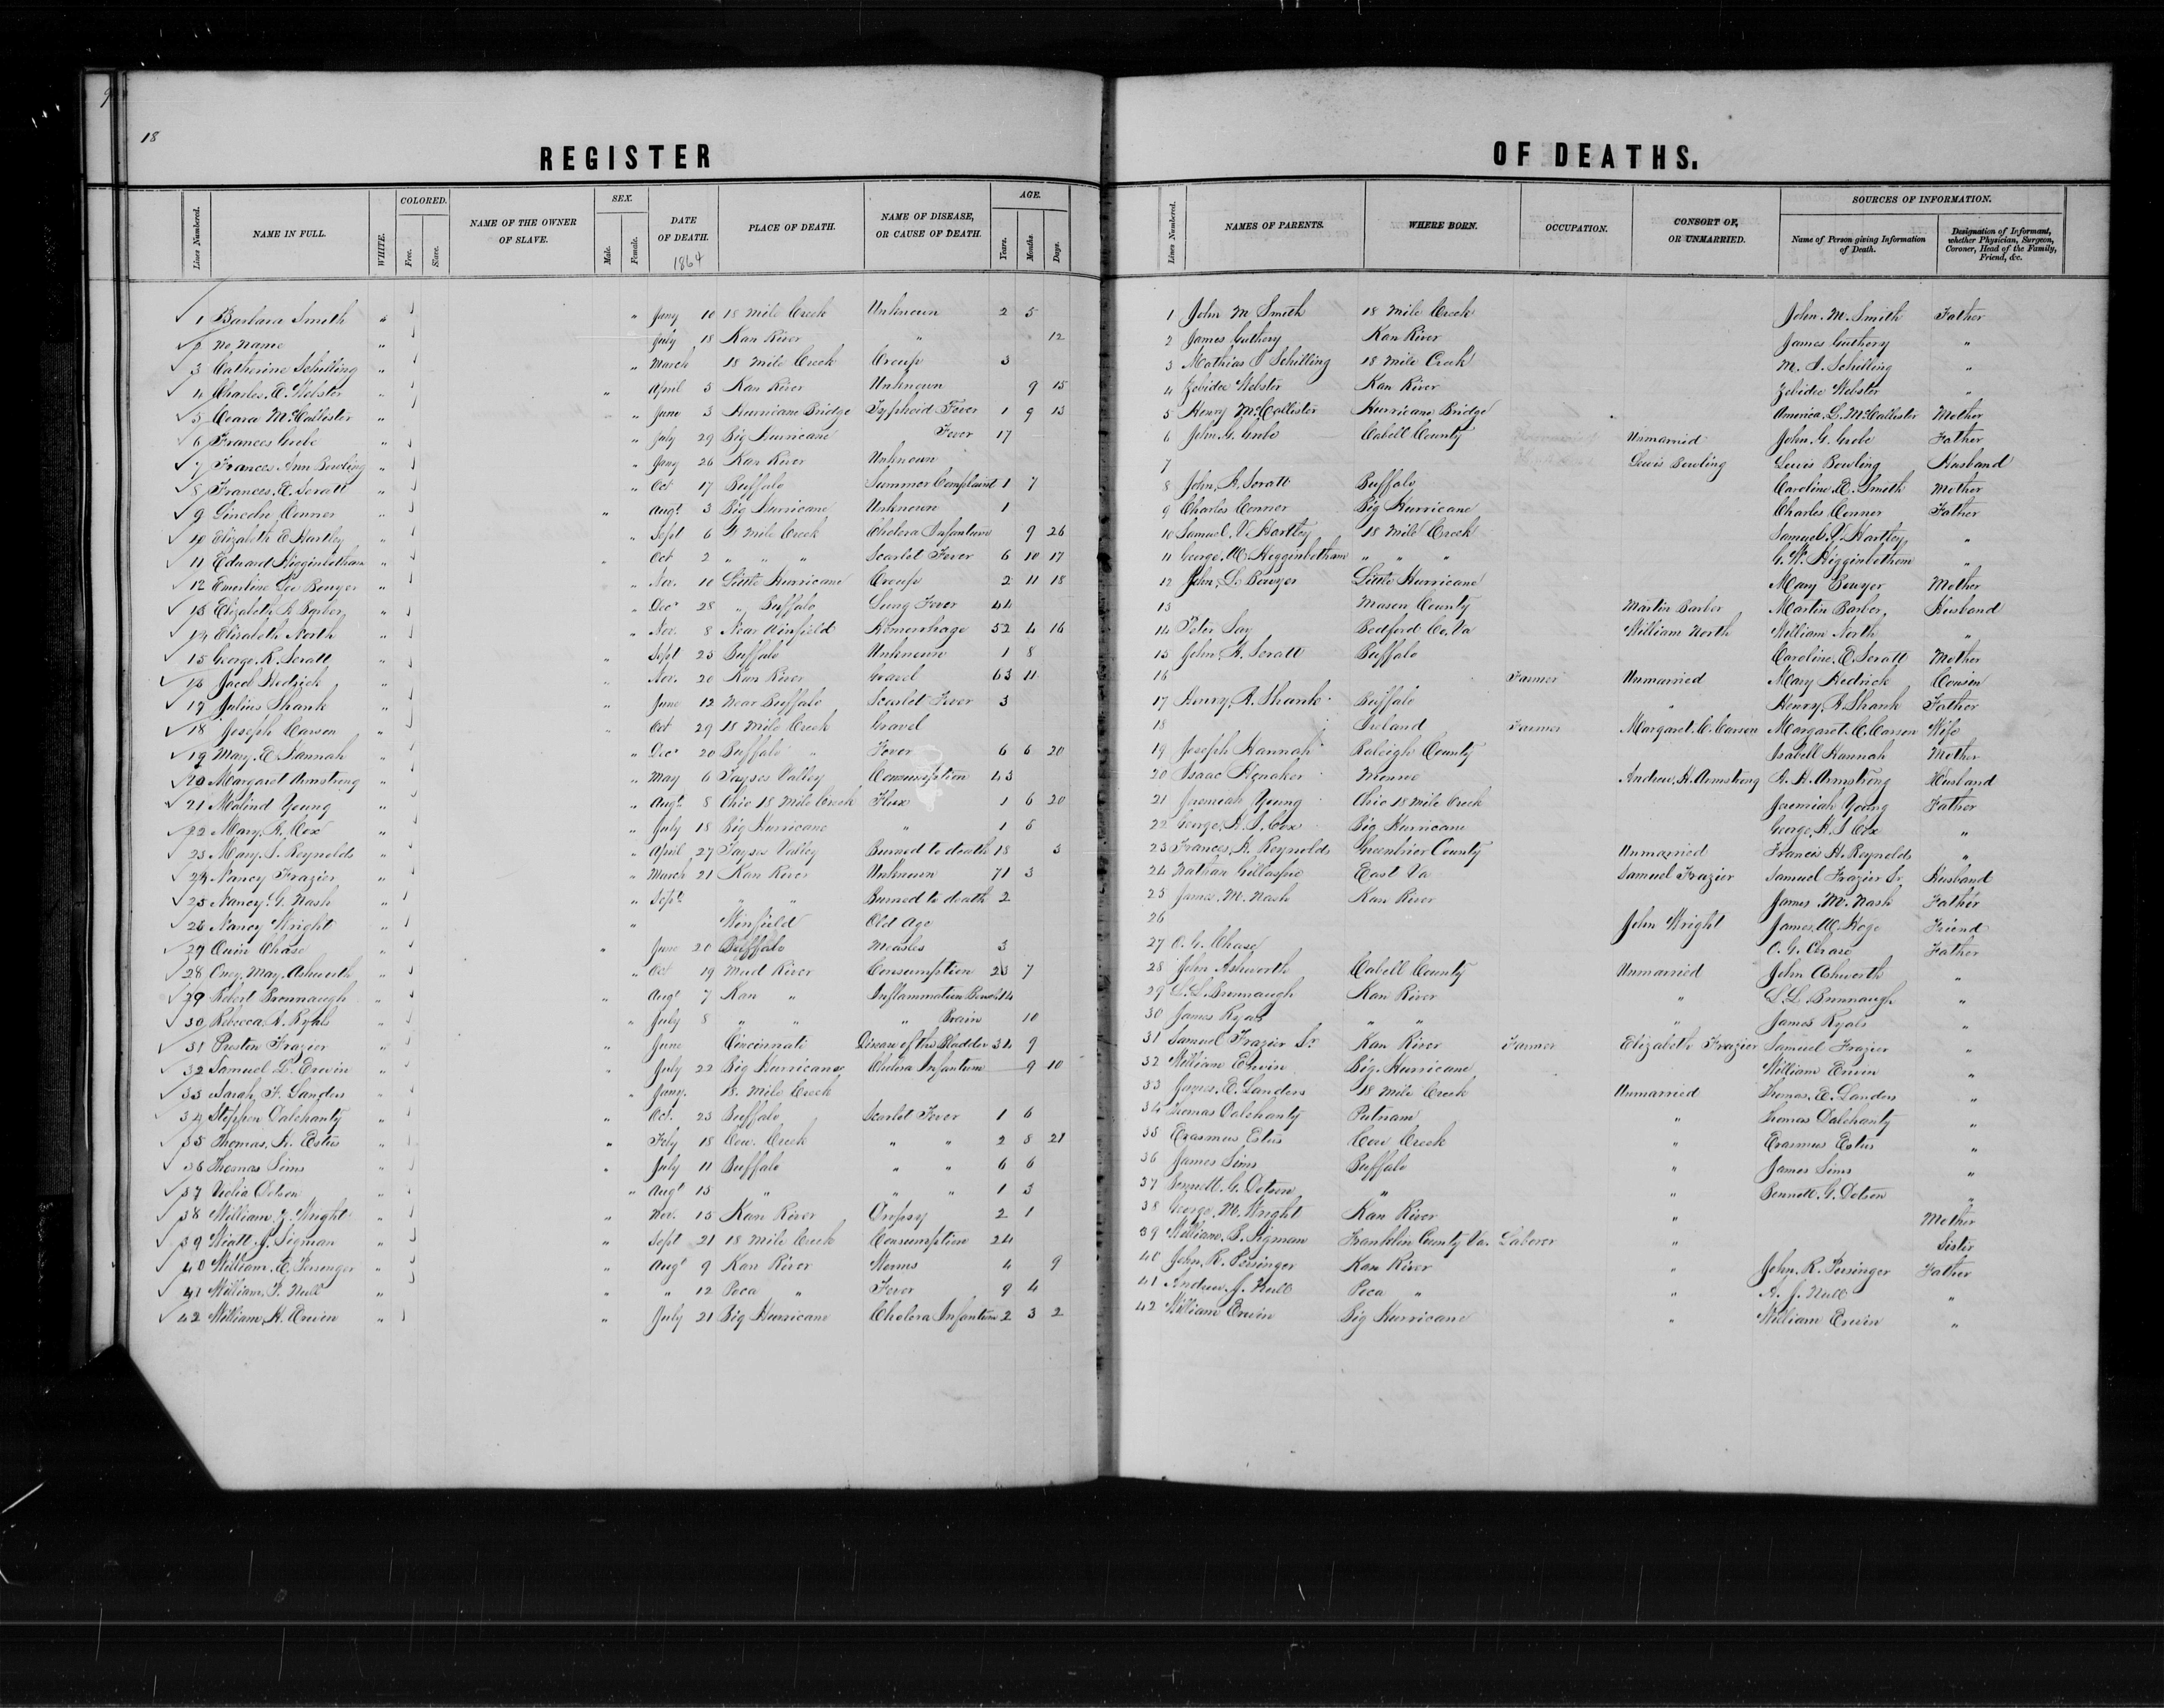 9
18
REGISTER OF DEATHS.
Lines Numbered. NAME IN FULL. WHITE. COLORED. Free. Slave. NAME OF THE OWNER OF SLAVE. SEX. Male. Female. DATE OF DEATH. 1864 PLACE OF DEATH. NAME OF DISEASE, OR CAUSE OF DEATH. AGE. Years. Months. Days.
Lines Numbered. NAMES OF PARENTS. WHERE BORN. OCCUPATION. CONSORT OF, OR UNMARRIED. SOURCES OF INFORMATION. Name of Person giving Information of Death. Designation of Informant, whether Physician, Surgeon, Coroner, Head of the Family, Friend, &c.
1 Barbara Smith " " Jany 10 18 Mile Creek Unknown 2 5
2 No Name " " July 18 Kan River " 12
3 Catherine Schilling " " March 18 Mile Creek Croup 3
4 Charles E. Webster " " April 5 Kan River Unknown 9 15
5 Ceara McCallister " " June 3 Hurricane Bridge Typhoid Fever 1 9 13
6 Frances Grobe " " July 29 Big Hurricane Fever 17
7 Frances Ann Bowling " " Jany 26 Kan River Unknown
8 Frances E. Soratt " " Oct 17 Buffalo Summer Complaint 1 7
9 Lincoln Conner " " Augt 3 Big Hurricane Unknown 1
10 Elizabeth E Hartley " " Sept 6 Mile Creek Cholera Infantum 9 26
11 Edward Higginbotham " " Oct 2 " " " Scarlet Fever 6 10 17
12 Emerline Lee Bowyer " " Nov. 10 Little Hurricane Croup 2 11 18
13 Elizabeth A Barber " " Dec 28 " Buffalo Lung Fever 44
14 Elizabeth North " " Nov. 8 Near Winfield Hemorrhage 52 4 16
15 George R. Soratt " " Sept 25 Buffalo Unknown 1 8
16 Jacob Hedrick " " Nov. 20 Kan River Gravel 63 11
17 Julius Shank " " June 12 Near Buffalo Scarlet Fever 3
18 Joseph Carson " " Oct 29 18 Mile Creek Gravel
19 Mary E Hannah " " Dec 20 Buffalo " Fever 6 6 20
20 Margaret Armstrong " " May 6 Tayses Valley Consumption 43
21 Malind Young " " Augt 8 Ohio 18 Mile Creek Flux 1 6 20
22 Mary A. Cox " " July 18 Big Hurricane " 1 6
23 Mary S. Reynolds " " April 27 Tayses Valley Burned to death 18 3
24 Nancy Frazier " " March 21 Kan River Unknown 71 3
25 Nancy G. Nash " " Sept " " Burned to death 2
26 Nancy Wright " " Winfield Old Age
27 Owin Chase " " June 20 Buffalo Measles 3
28 Oney May Ashworth " " Oct 19 Mud River Consumption 23 7
29 Robert Bronnaugh " " Augt 7 Kan " Inflammation Bowels 14
30 Rebecca A. Ryals " " July 8 " " " Brain 10
31 Preston Frazier " " June Cincinnati Disease of the Bladder 34 9
32 Samuel D. Erwin " " July 22 Big Hurricane Cholera Infantum 9 10
33 Sarah F. Landers " " Jany. 18 Mile Creek
34 Stephen Dalehanty " " Oct. 23 Buffalo Scarlet Fever 1 6
35 Thomas H. Estus " " July 18 Cow Creek " " 2 8 21
36 Thomas Sims " " July 11 Buffalo " " 6 6
37 Viclia Dotson " " Augt 15 " " " 1 3
38 William J. Wright " " Nov. 15 Kan River Dropsy 2 1
39 Wiatt J. Sigman " " Sept 21 18 Mile Creek Consumption 24
40 William E. Persinger " " Augt 9 Kan River Worms 4 9
41 William P. Null " " " 12 Poca " Fever 9 4
42 William H. Erwin " " July 21 Big Hurricane Cholera Infantum 2 3 2
1 John M Smith 18 Mile Creek John. M. Smith Father
2 James Guthery Kan River James Guthery "
3 Mathias I Schilling 18 Mile Creek M. I. Schilling "
4 Zebidee Webster Kan River Zebidee Webster "
5 Henry McCallister Hurricane Bridge America L. McCallister Mother
6 John G. Grobe Cabell County Unmarried John G. Grobe Father
7 Lewis Bowling Lewis Bowling Husband
8 John A. Soratt Buffalo Caroline E. Smith Mother
9 Charles Conner Big Hurricane Charles Conner Father
10 Samuel V Hartley 18 Mile Creek Samuel V. Hartley "
11 George W. Higginbotham " " " G. W. Higginbothom "
12 John L. Bowyer Little Hurricane Mary Bowyer Mother
13 Mason County Martin Barber Martin Barber Husband
14 Peter Lay Bedford Co. Va William North William North "
15 John A. Soratt Buffalo Caroline E. Soratt Mother
16 Farmer Unmarried Mary Hedrick Cousin
17 Henry R. Shank Buffalo " Henry R Shank Father
18 Ireland Farmer Margaret C. Carson Margaret C. Carson Wife
19 Joseph Hannah Raleigh County Isabell Hannah Mother
20 Isaac Honaker Monroe Andrew H. Armstrong A. H. Armstrong Husband
21 Jeremiah Young Ohio 18 Mile Creek Jeremiah Young Father
22 George H. S. Cox Big Hurricane George H. S Cox "
23 Frances H. Reynolds Greenbrier County Unmarried Francis H. Reynolds "
24 Nathan Gillaspie East Va Samuel Frazier Samuel Frazier Sr Husband
25 James. M. Nash Kan River James M. Nash Father
26 John Wright James W. Hoge Friend
27 O. G. Chase O. G. Chase Father
28 John Ashworth Cabell County Unmarried John Ashworth "
29 L. L. Bronnaugh Kan River " L. L. Bronnaugh "
30 James Ryals " " " James Ryals "
31 Samuel Frazier Sr. Kan River Farmer Elizabeth Frazier Samuel Frazier "
32 William Erwin Big Hurricane William Erwin "
33 James. E. Landers 18 Mile Creek Unmarried Thomas. E. Landers "
34 Thomas Dalehanty Putnam " Thomas Dalehanty "
35 Erasmus Estus Cow Creek " Erasmus Estus "
36 James Sims Buffalo " James Sims "
37 Bennett G. Dotson " " Bennett G. Dotson "
38 George M. Wright Kan River " Mother
39 William S. Sigman Franklin County Va. Laborer " Sister
40 John. R. Persinger Kan River " John. R. Persinger Father
41 Andrew J. Null Poca " " A. J. Null "
42 William Erwin Big Hurricane " William Erwin "